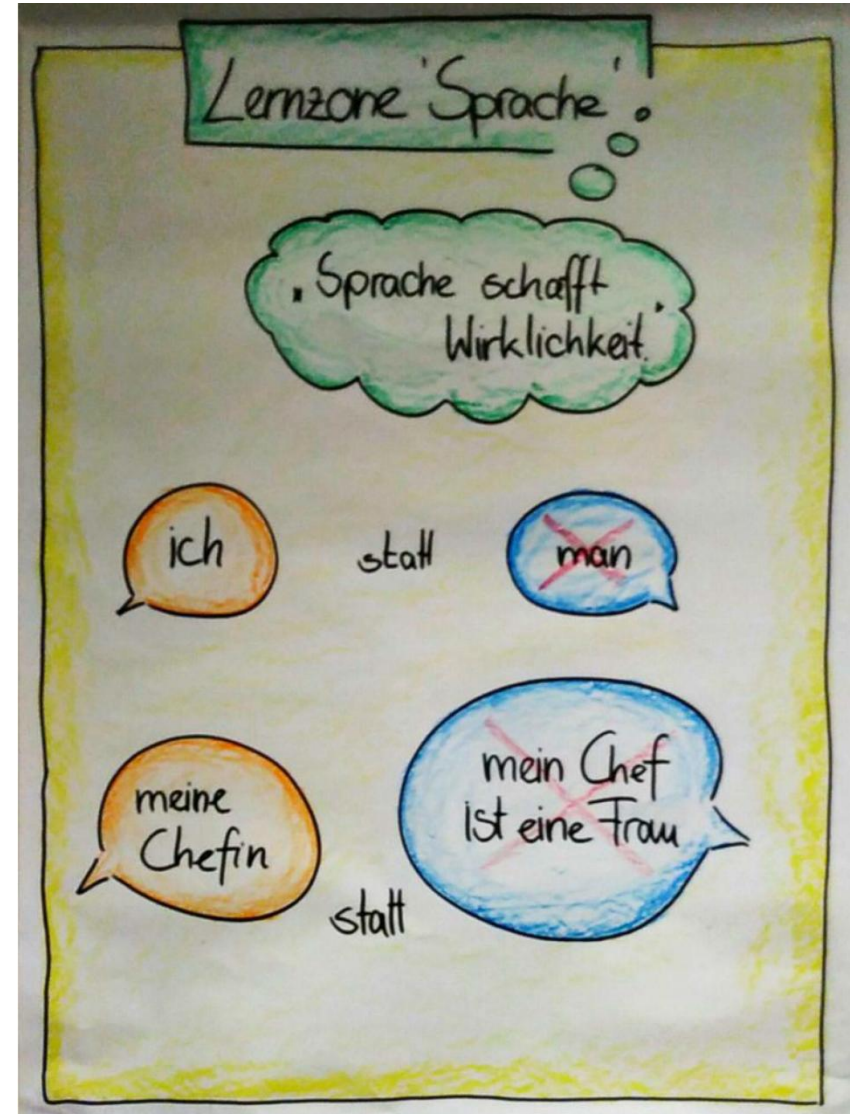 Lernzone 'Sprache'
"Sprache schafft
Wirklichkeit."
ich statt man
meine
Chefin
statt
mein Chef
ist eine Frau